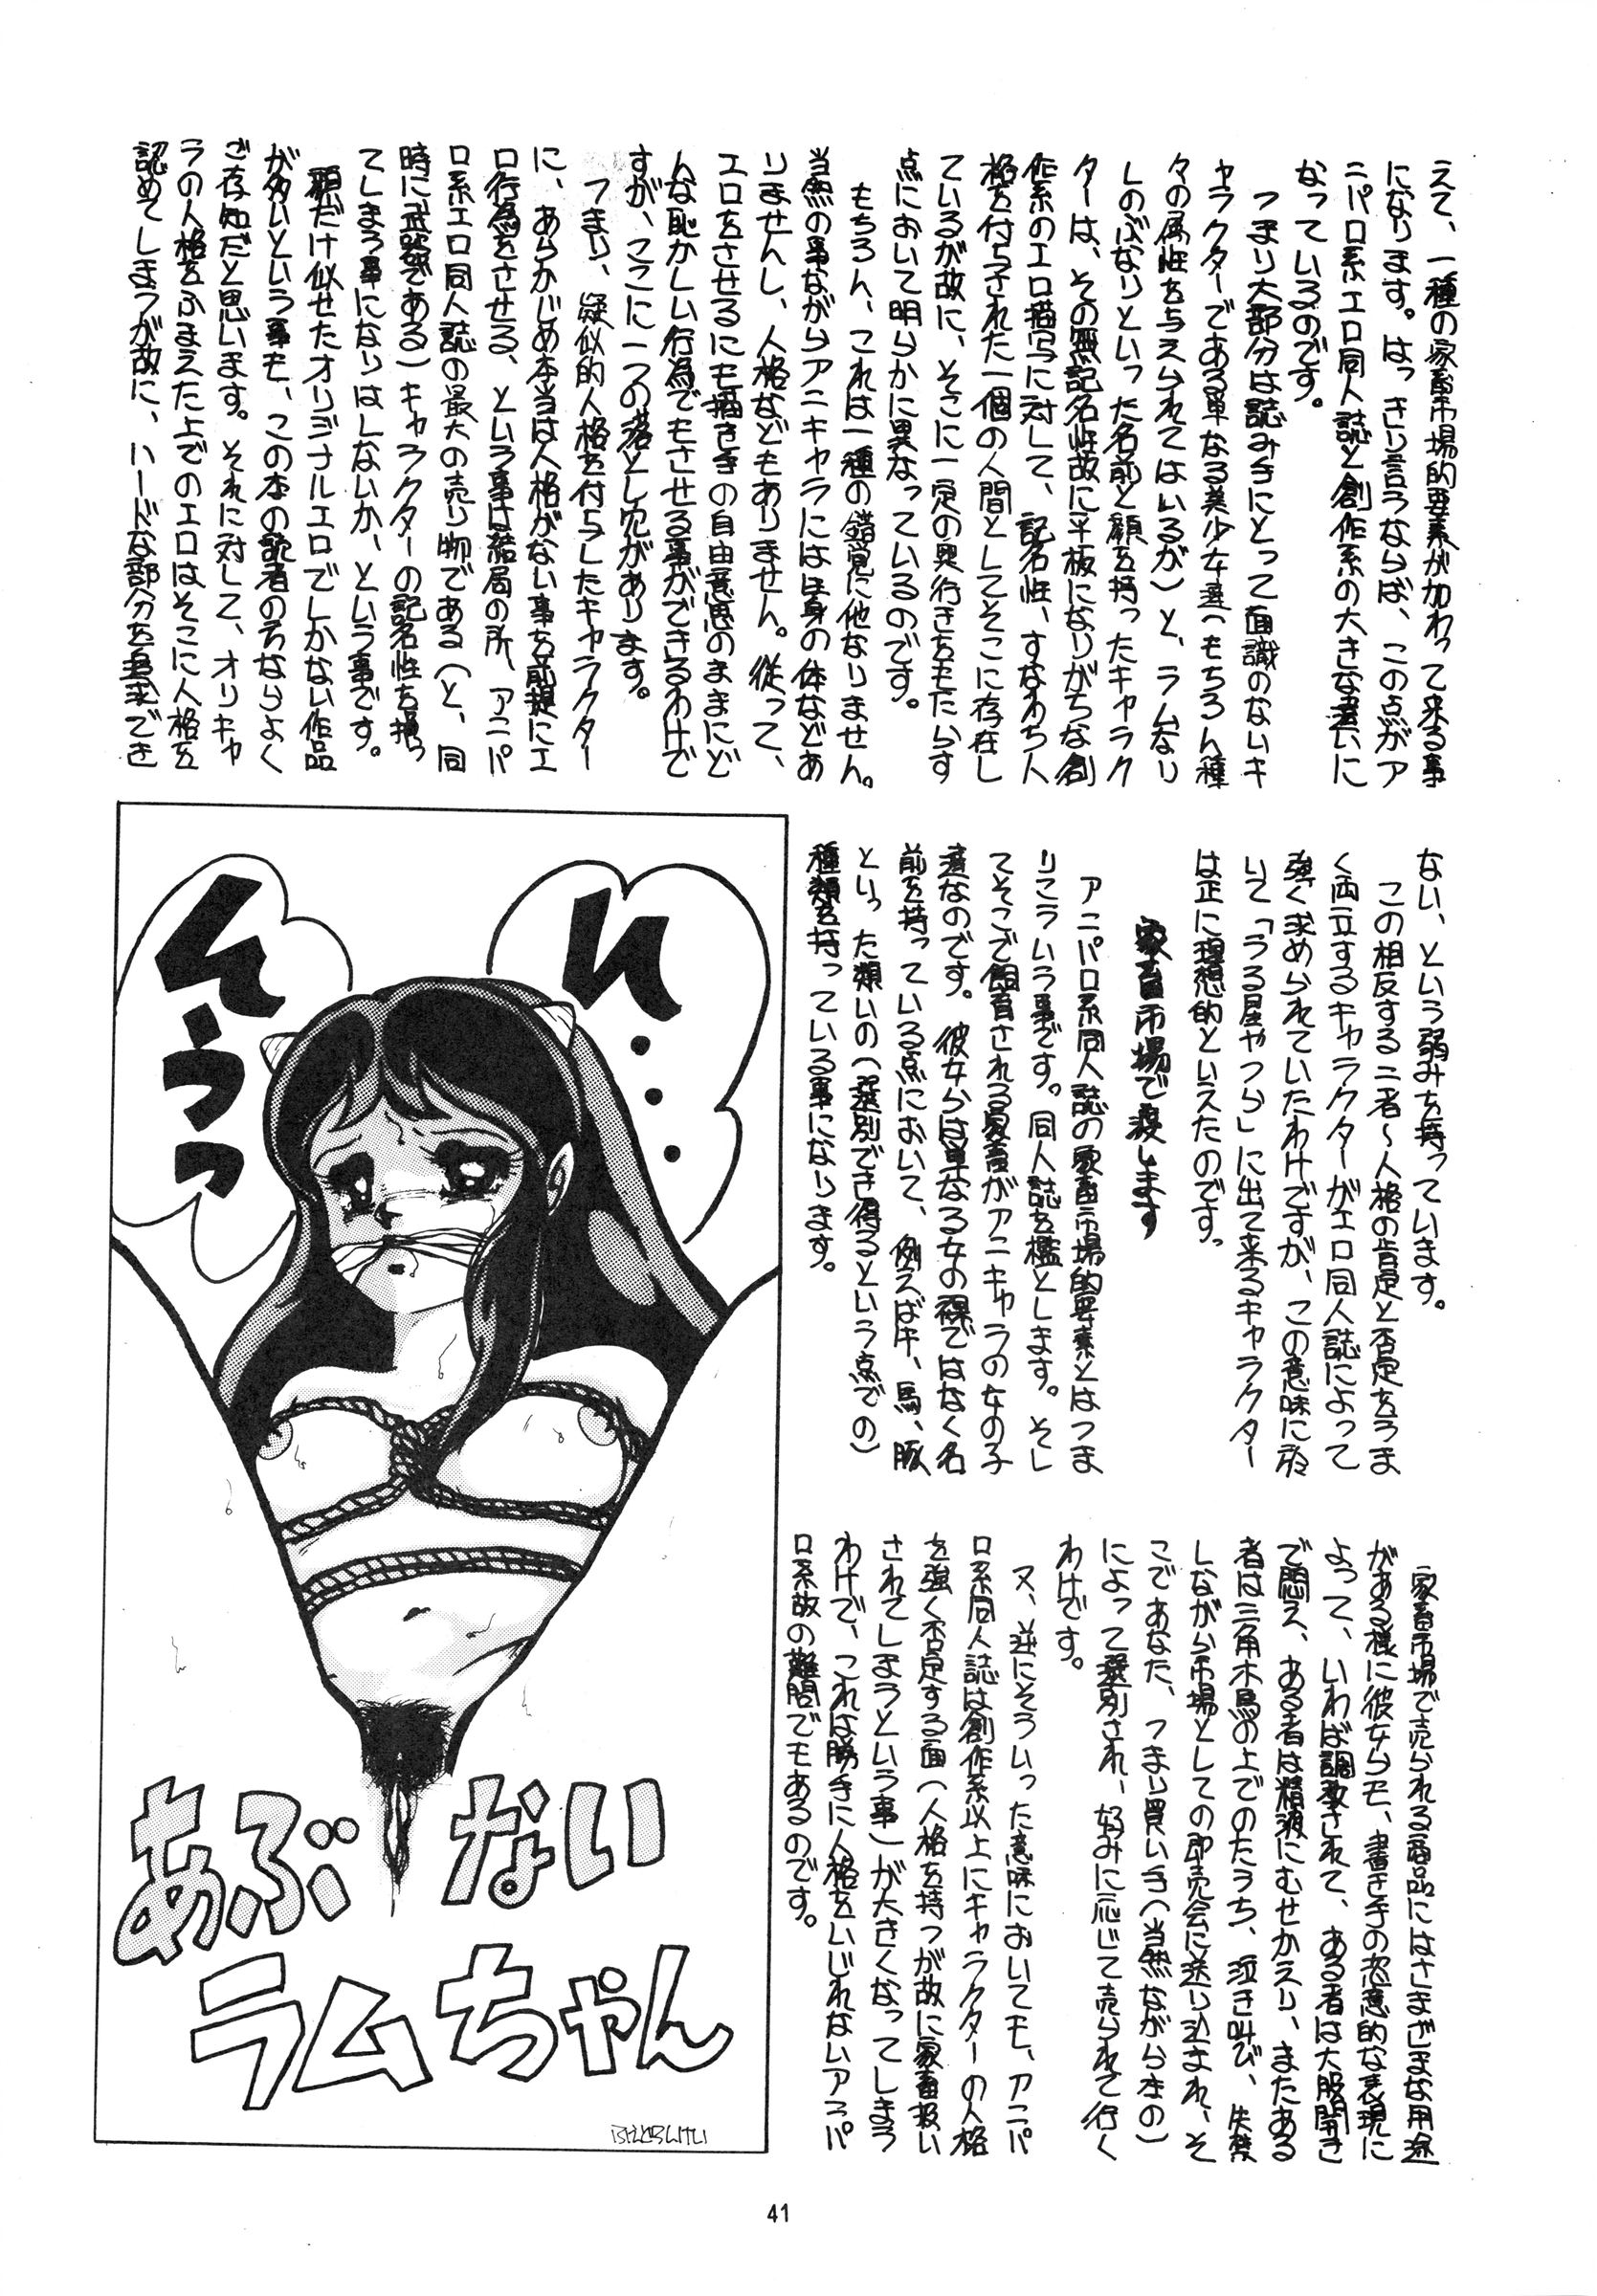 えて、一種の家畜市場的要素が加わって来る事
になります。はっきり言うならば、この点がア
ニパロ系エロ同人誌と創作系の大きな違いに
なっているのです。
つまり大部分は読み手にとって面識のないキ
ャラクターである単なる美少女達(もちろん種
々の属性を与えられてはいるが)と、ラムなり
しのぶなりといった名前と顔を持ったキャラク
ターは、その無記名性故に平板になりがちな創
作系のエロ描写に対して、記名性、すなわち人
格を付与された一個の人間としてそこに存在し
ているが故に、そこに一定の奥行きをもたらす
点において明らかに異なっているのです。
もちろん、これは一種の錯覚に他なりません。
当然の事ながらアニキャラには生身の体などあ
りませんし、人格などもありません。従って、
エロをさせるにも描き手の自由意思のままにど
んな恥かしい行為でもさせる事ができるわけで
すが、ここに一つの落とし穴があります。
つまり、疑似的人格を付与したキャラクター
に、あらかじめ本当は人格がない事を前提にエ
ロ行為をさせる、という事は結局の所、アニパ
ロ系エロ同人誌の最大の売り物である(と、同
時に武器である)キャラクターの記名性を損っ
てしまう事になりはしないか、という事です。
顔だけ似せたオリジナルエロでしかない作品
が多いという事も、この本の読者の方ならよく
ご存知だと思います。それに対して、オリキャ
ラの人格をふまえた上でのエロはそこに人格を
認めてしまうが故に、ハードな部分を追求でき
ない、という弱みも持っています。
この相反する二者〜人格の肯定と否定をうま
く両立するキャラクターがエロ同人誌によって
強く求められていたわけですが、この意味に於
いて「うる星やつら」に出て来るキャラクター
は正に理想的といえたのです。
家畜市場で殺します
アニパロ系同人誌の家畜市場的要素とはつま
りこういう事です。同人誌を檻とします。そし
てそこで飼育される家畜がアニキャラの女の子
達なのです。彼女らは単なる女の裸ではなく名
前を持っている点において、例えば牛、馬、豚
といった類いの(選別でき得るという点での)
種類を持っている事になります。
家畜市場で売られる商品にはさまざまな用途
がある様に彼女らも、書き手の恣意的な表現に
よって、いわば調教されて、ある者は大股開き
で悶え、ある者は精液にむせかえり、またある
者は三角木馬の上でのたうち、泣き叫び、失禁
しながら市場としての即売会に送り込まれ、そ
こであなた、つまり買い手(当然ながら本の)
によって選別され、好みに応じて売られて行く
わけです。
又、逆にそういった意味においても、アニパ
ロ系同人誌は創作系以上にキャラクターの人格
を強く否定する面(人格を持つが故に家畜扱い
されてしまうという事)が大きくなってしまう
わけで、これは勝手に人格をいじれないアニパ
ロ系故の難問でもあるのです。
い・・・
んうっ
あぶない
ラムちゃん
41